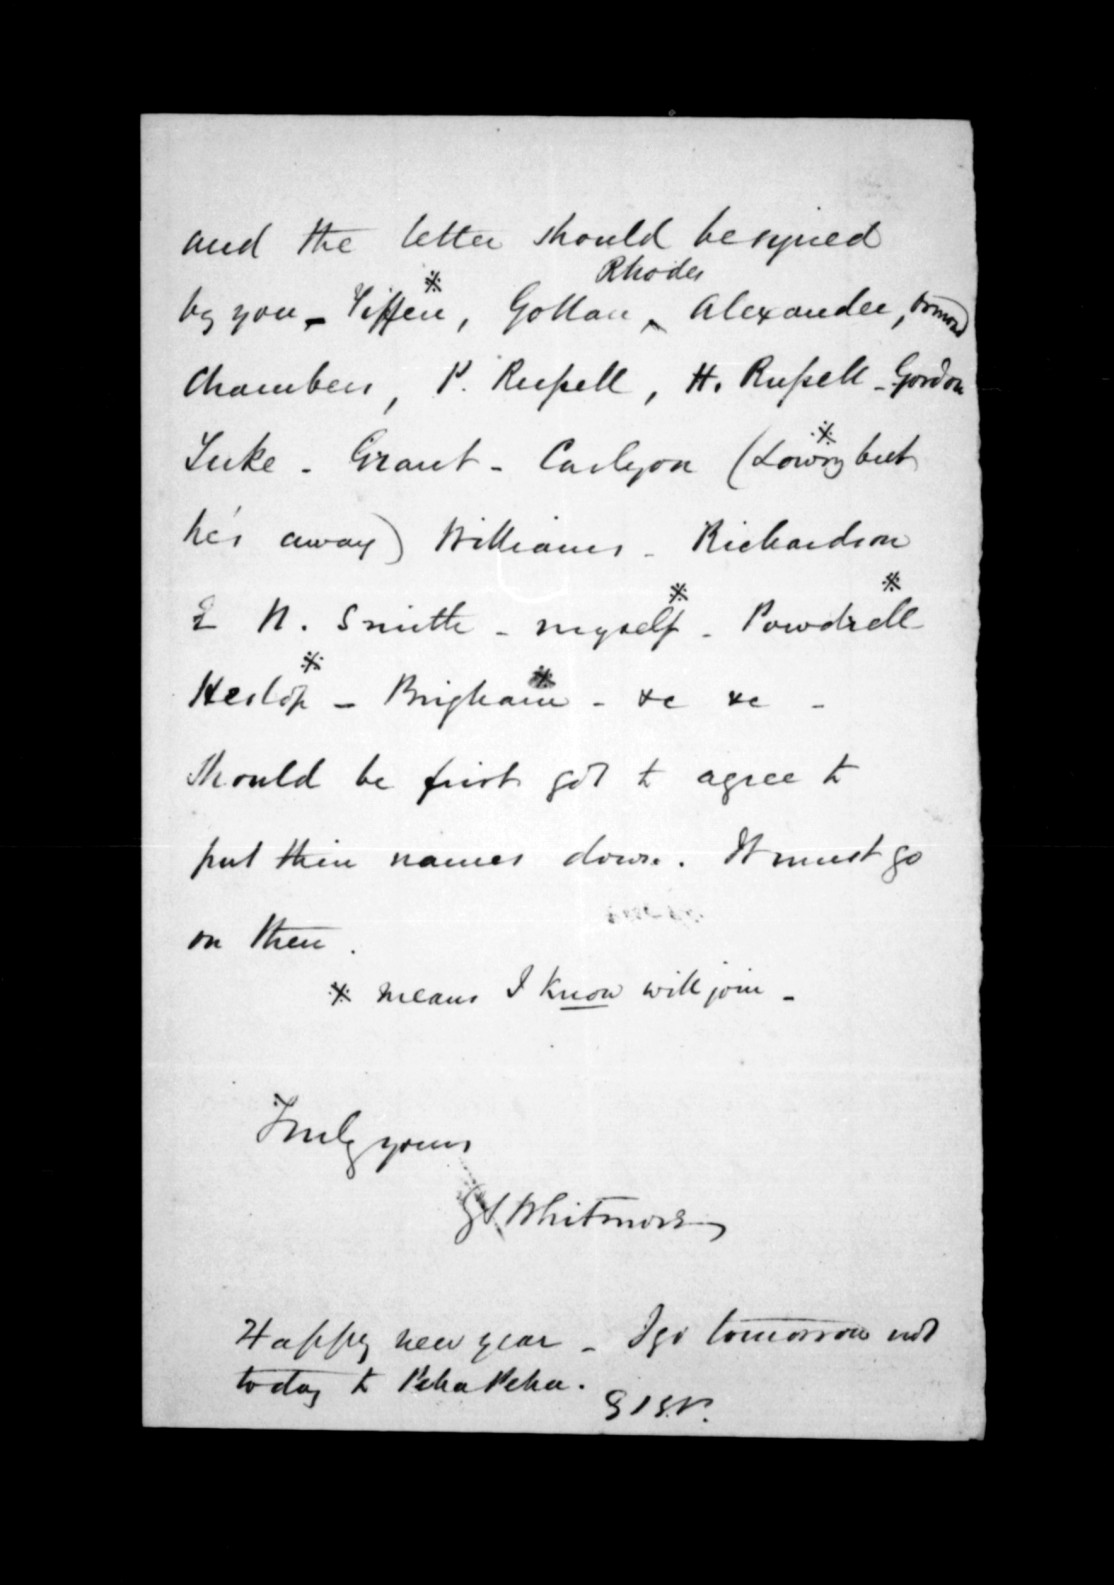 and the letter should be signed
Rhodes
by you - Tiffen ※, Gollan ‸ Alexander, Ormond
Chambers, P. Russell, H. Russell - Gordon
Tuke - Grant - Carlyon (Lowry ※ but
he's away) Williams - Richardson
& N. Smith - myself ※ - Powdrell ※
Heslop ※ - Brigham ※ - &c &c -
Should be first got to agree to
put their names down. It must go
on then.
※ means I know will join -
Truly yours
GS Whitmore
Happy new year - I go tomorrow not
today to Peka Peka.
GSW.